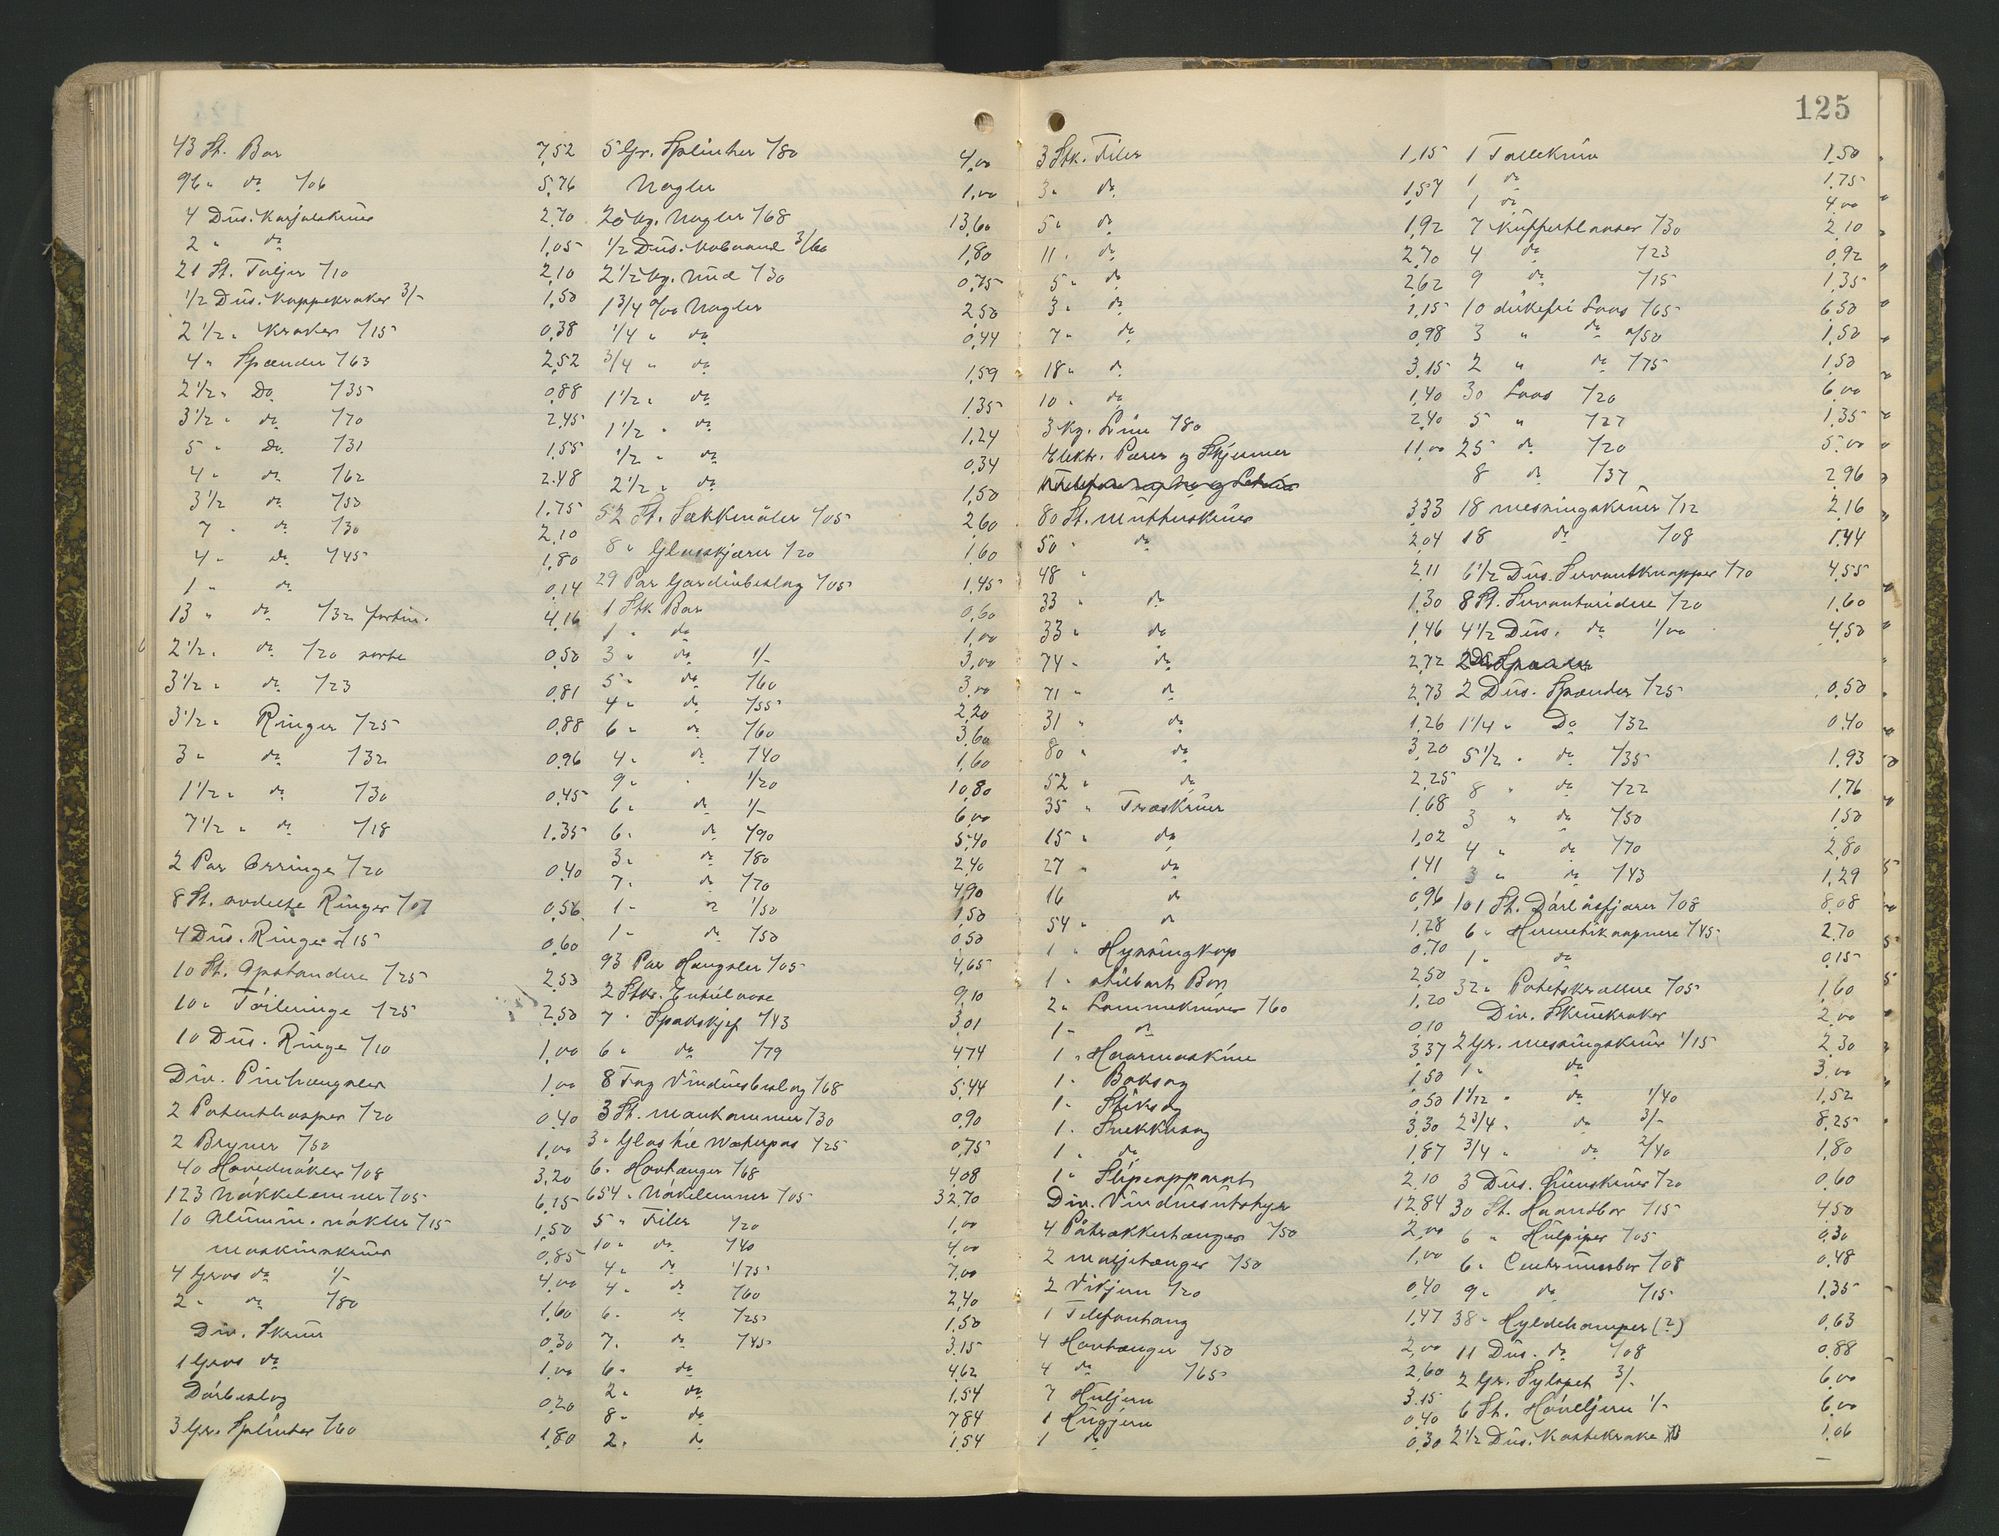 125
43 St. Bor 7,52
96 " do /06 5,76
4 Dus. Karjolskrues 2,70
2 " do 1,05
21 St. Taljer /10 2,10
1/2 Dus. Kappekroker 3/- 1,50
2 1/2 " Kroker /15 0,38
4 " Spænder /63 2,52
2 1/2 " Do /35 0,88
3 1/2 " do /70 2,45
5 " Do /31 1,55
4 " do /62 2,48
3 1/2 do /50 1,75
7 " do /30 2,10
4 " do /45 1,80
1 " do 0,14
13 " do /32 fortin. 4,16
2 1/2 " do /20 sorte 0,50
3 1/2 " do /23 0,81
3 1/2 " Ringer /25 0,88
3 " do /32 0,96
1 1/2 " do /30 0,45
7 1/2 " do /18 1,35
2 Par Ørringe /20 0,40
8 St. avdelte Ringer /07 0,56
4 Dus. Ringe /15 0,60
10 St. Opstandere /25 2,50
10 " Töileringe /25 2,50
10 Dus. Ringe /10 1,00
Div. Pinhængsler 1,00
2 Patenthasper /20 0,40
2 Bryner /50 1,00
40 Hovednökler /08 3,20
123 Nökkelemner /05 6,15
10 Alumin. nökler /15 1,50
Maskinskrues 0,85
4 Gros do 1/- 4,00
2 " do /80 1,60
Div. Skruer 0,30
1 Gros do 1,00
Dörbeslag 0,20
3 Gr. Splinter /60 1,80
5 Gr. Splinter /80 4,00
Nagler 1,00
20 kg. Nagler /68 13,60
1/2 Dus. 3/60 1,80
2 1/2 kg. /30 0,75
1 3/4 0/00 Nagler 2,50
1/4 " do 0,44
3/4 " do 1,59
1 1/2 " do 1,35
1 1/2 " do 1,24
1/2 " do 0,34
2 1/2 " do 1,50
52 St. Sekkenöler /05 2,60
8 " Glasskjærer /20 1,60
29 Par Gardinbeslag /05 1,45
1 Stk Bor 0,60
1 " do 1,00
3 " do 1/- 3,00
5 " do /60 3,00
4 " do /55 2,20
6 " do /60 3,60
4 " do /40 1,60
9 " " 1/20 10,80
6 " do 1/- 6,00
6 " do /90 5,40
3 " do /80 2,40
7 " do /70 4,90
1 " do 1/50 1,50
1 " do /50 0,50
93 Par Hængsler /05 4,65
2 Stkr. 9,10
7 " Spakskjef /43 3,01
6 " do /79 4,74
8 Fag Vinduesbeslag /68 5,44
3 St. /30 0,90
3 " Glas til Waterpas /25 0,75
6 " Hovtænger /68 4,08
654 " Nökelemner /05 32,70
5 " Filer /20 1,00
10 " do /40 4,00
4 " do 1/75 7,00
4 " do /60 2,40
6 " do /25 1,50
7 " do /45 3,15
6 " do 4,62
2 " do 1,54
8 " do 7,84
2 " do 1,54
3 Stk. Filer 1,15
3 " do 1,57
5 " do 1,92
11 " do 2,70
5 " do 2,62
3 " do 1,15
7 " do 0,98
18 " do 3,15
10 " do 1,40
3 kg. Lim /80 2,40
Elektr. Pærer og Skjermer 11,00
80 St. Mutterskrues 3,33
50 " do 2,04
48 " 2,11
33 " do 1,30
33 " do 1,46
74 " do 2,72
71 " do 2,73
31 " do 1,26
80 " do 3,20
52 " do 2,25
35 " Træskruer 1,68
15 " do 1,02
27 " do 1,41
16 do 0,96
54 " do 1,28
1 " Hyssingkop 0,70
1 " stilbart Bor 2,50
2 " Lommekniver /60 1,20
1 " do 0,10
1 " Haarmaskine 3,37
1 " Baksag 1,50
1 " Stiksag 0,50
1 " Snekkersag 3,30
1 " do 1,87
1 " Slipeapparat 2,10
Div. Vinduesutstyr 12,84
4 Påtrækkertænger /50 2,00
2 Maljetænger /50 1,00
2 Vikjern /20 0,40
1 Telefontang 1,47
4 Hovtænger /50 2,00
4 do /65 2,60
7 Huljern 3,15
1 Hugjern 0,40
1 do 0,30
1 Tollekniv 1,50
1 do 1,75
1 do 4,00
7 Kuffertlaaser /30 2,10
4 do /23 0,92
9 do /15 1,35
10 dirkefri Laas /65 6,50
3 " do /50 1,50
2 " do /75 1,50
30 Laas /20 6,00
5 " /27 1,35
25 do /20 5,00
8 do /37 2,96
18 Messingskruer /12 2,16
18 do /08 1,44
6 1/2 Dus. Servantknapper /70 4,55
8 St. Servantvridere /20 1,60
4 1/2 Dus. do 1/00 4,50
2 Dus. Spænder /25 0,50
1 1/4 " Do /32 0,40
5 1/2 " do /35 1,93
8 " do /22 1,76
3 " do /50 1,50
4 " do /70 2,80
3 " do /43 1,29
101 St. Dörlåsfjærer /08 8,08
6 " Hermetikaapnere /45 2,70
1 " do 0,15
32 " Potetskrællere /05 1,60
Div. Skruekroker 2,00
2 Gr. Messingskrues 1/15 2,30
1 " do 3,00
1 1/12 " do 1/40 1,52
2 3/4 " do 3/- 8,25
3/4 " do 2/40 1,80
3 Dus. /20 0,60
30 St. Haandbor /15 4,50
6 " Hulpiper /05 0,30
6 " Centrumsbor /08 0,48
9 " do /15 1,35
38 " Hyldeknapper (?) 0,63
11 Dus. do /08 0,88
2 Gr. Sylspet 3/- 6,00
6 St. Höveljern 1/- 6,00
2 1/2 Dus. Kastekroke 1,06